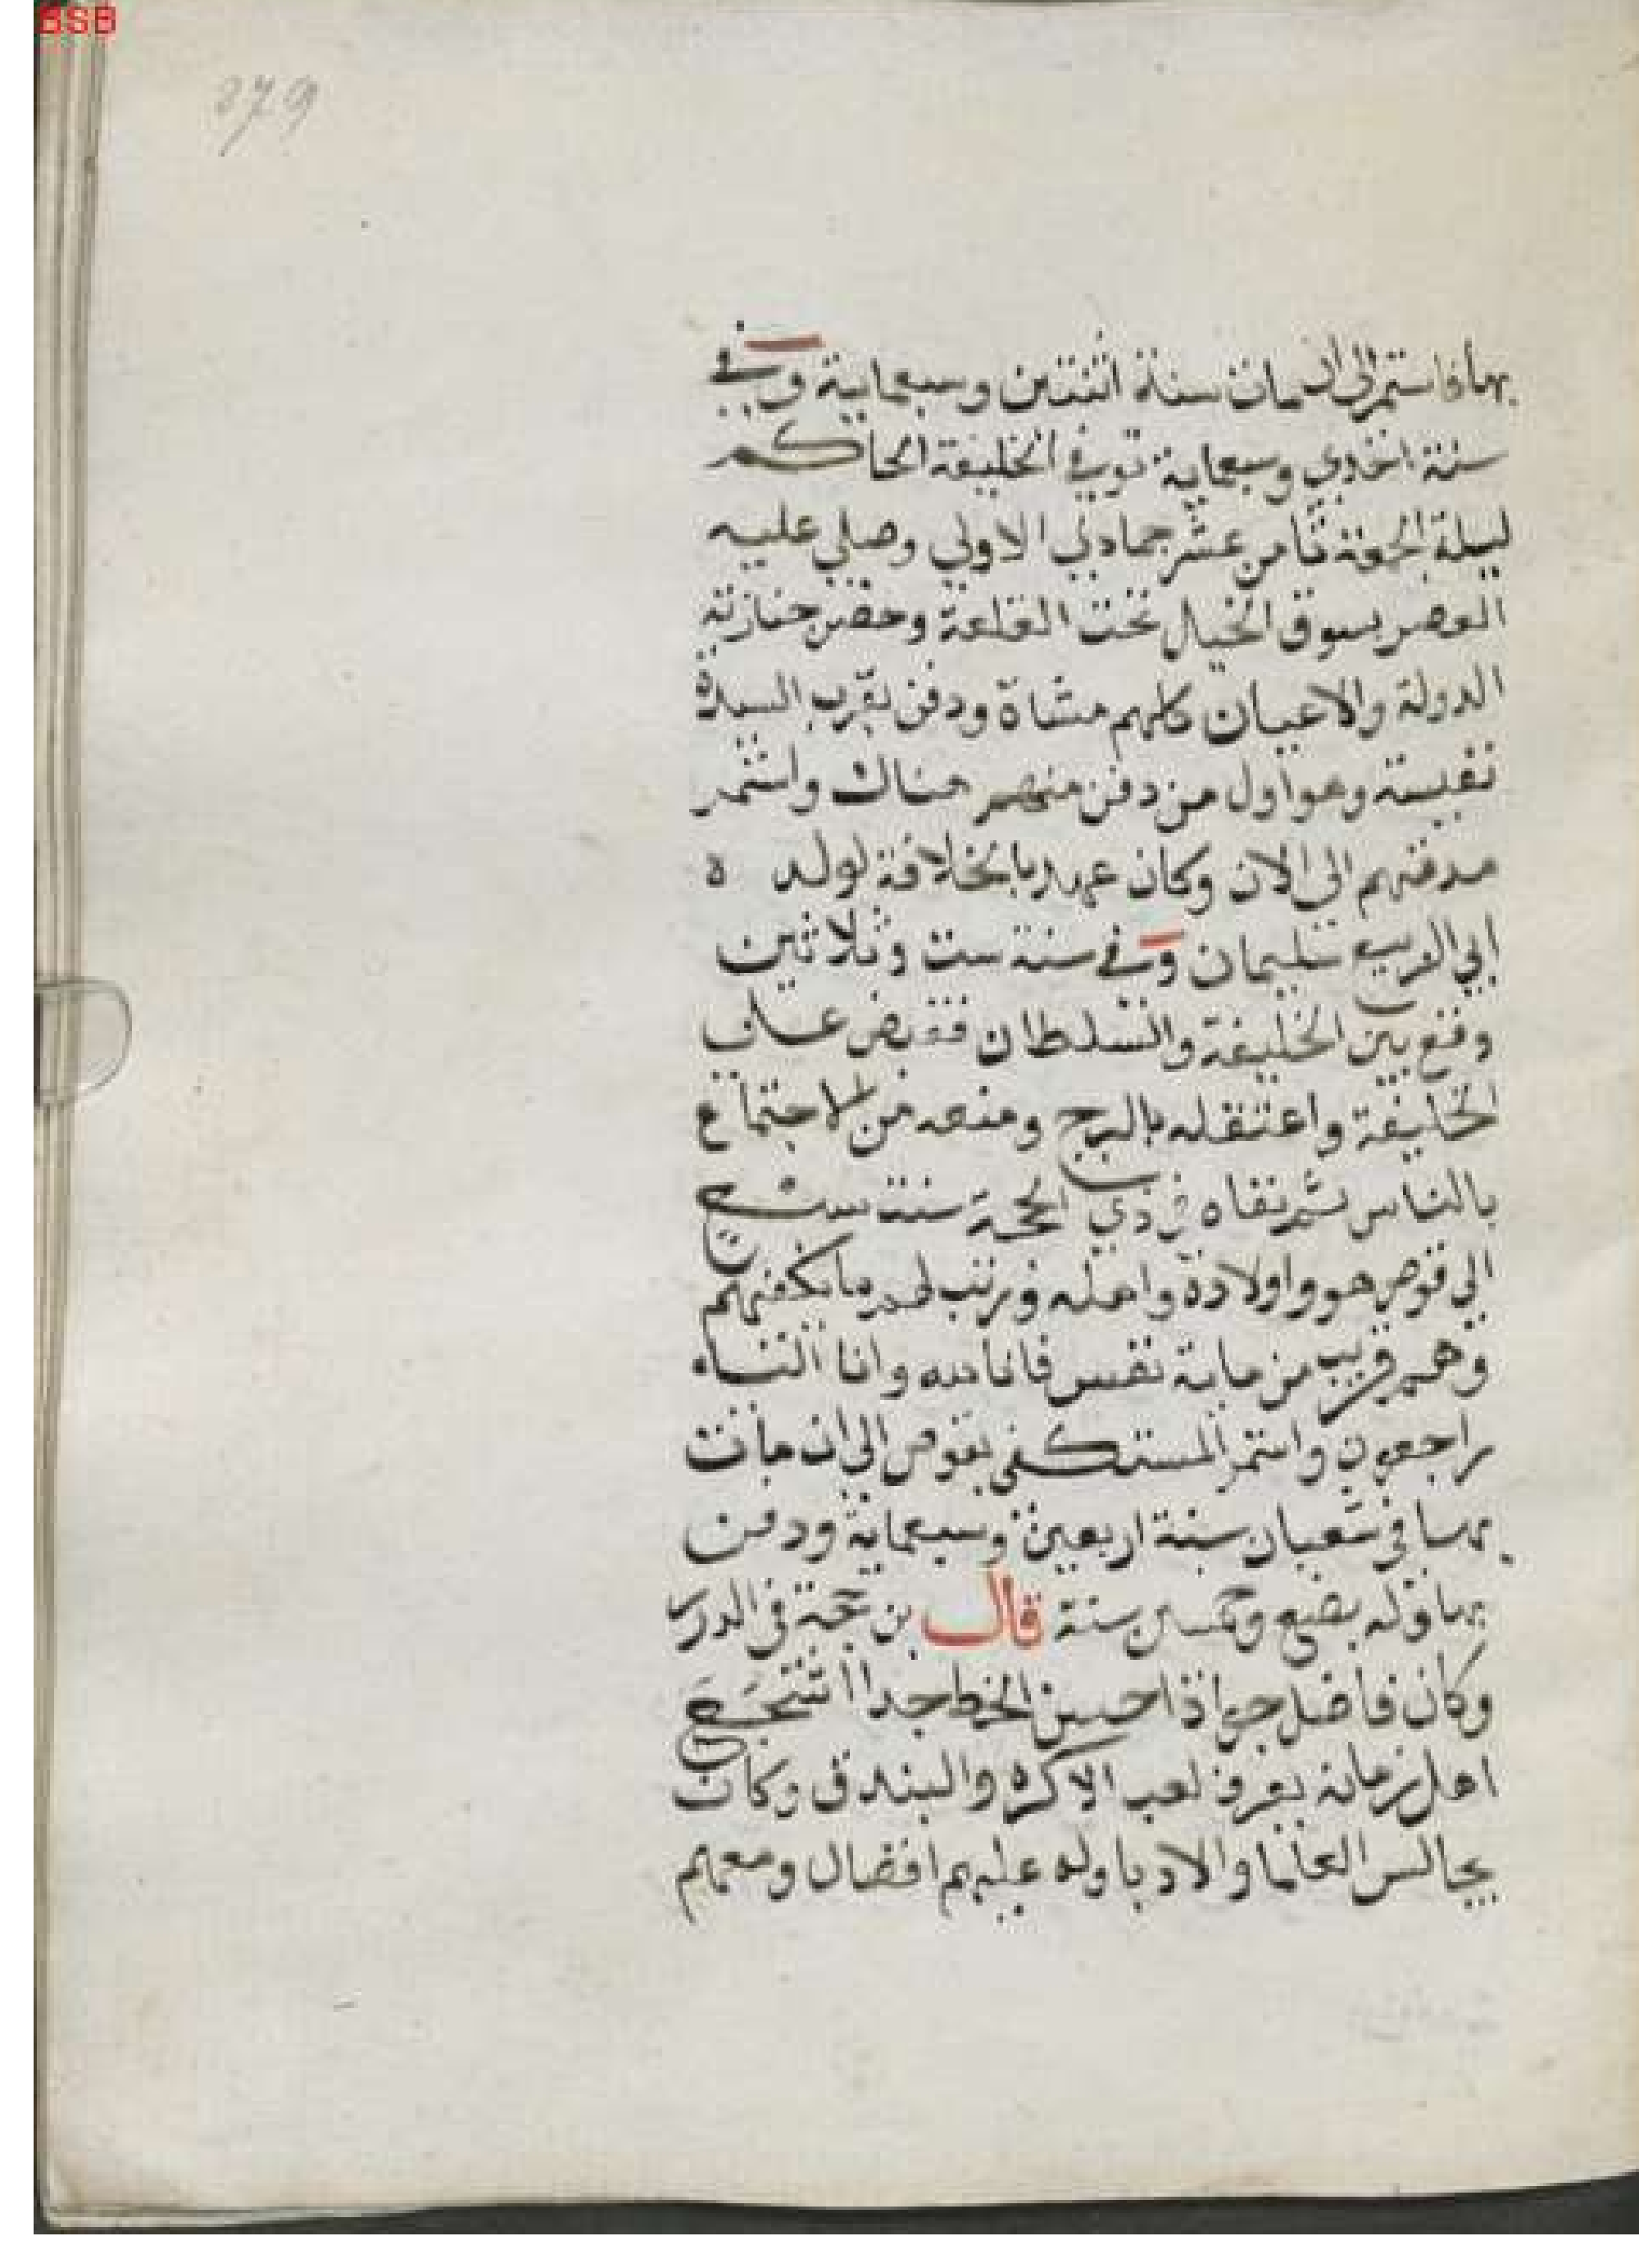 BSB
279
بها فاستمر الى ان مات سنة اثنتين وسبعماية وفي
سنة احدي وسبعماية توفي الخليفة الحاكم
ليلة الجمعة ثامن عشر جمادي الاولي وصلي عليه
العصر بسوق الخيل تحت القلعة وحضر جنازته
الدولة والاعيان كلهم مشاة ودفن بقرب السيدة
نفيسة وهو اول من دفن منهم هناك واستمر
مدفنهم الي الان وكان عهد بالخلافة لولده
ابي الربيع سليمان وفي سنة ست وثلاثين
وقع بين الخليفة والسلطان فقبض علي
الخليفة واعتقله بالبرج ومنعه من الاجتماع
بالناس ثم نفاه في ذي الحجة سنت سبع
الي قوص هو واولاده واهله ورتب لهم ما يكفيهم
وهم قريب من ماية نفس فانا لله وانا اليه
راجعون واستمر المستكفي بقوص الي ان مات
بها في شعبان سنة اربعين وسبعماية ودفن
بها وله بضع وخمسين سنة قال بن حجة في الدرر
وكان فاضل جوادا حسن الخط جدا اشجع
اهل زمانه يعرف لعب الاكره والبندق وكان
يجالس العلما والادبا وله عليهم افضال ومعهم